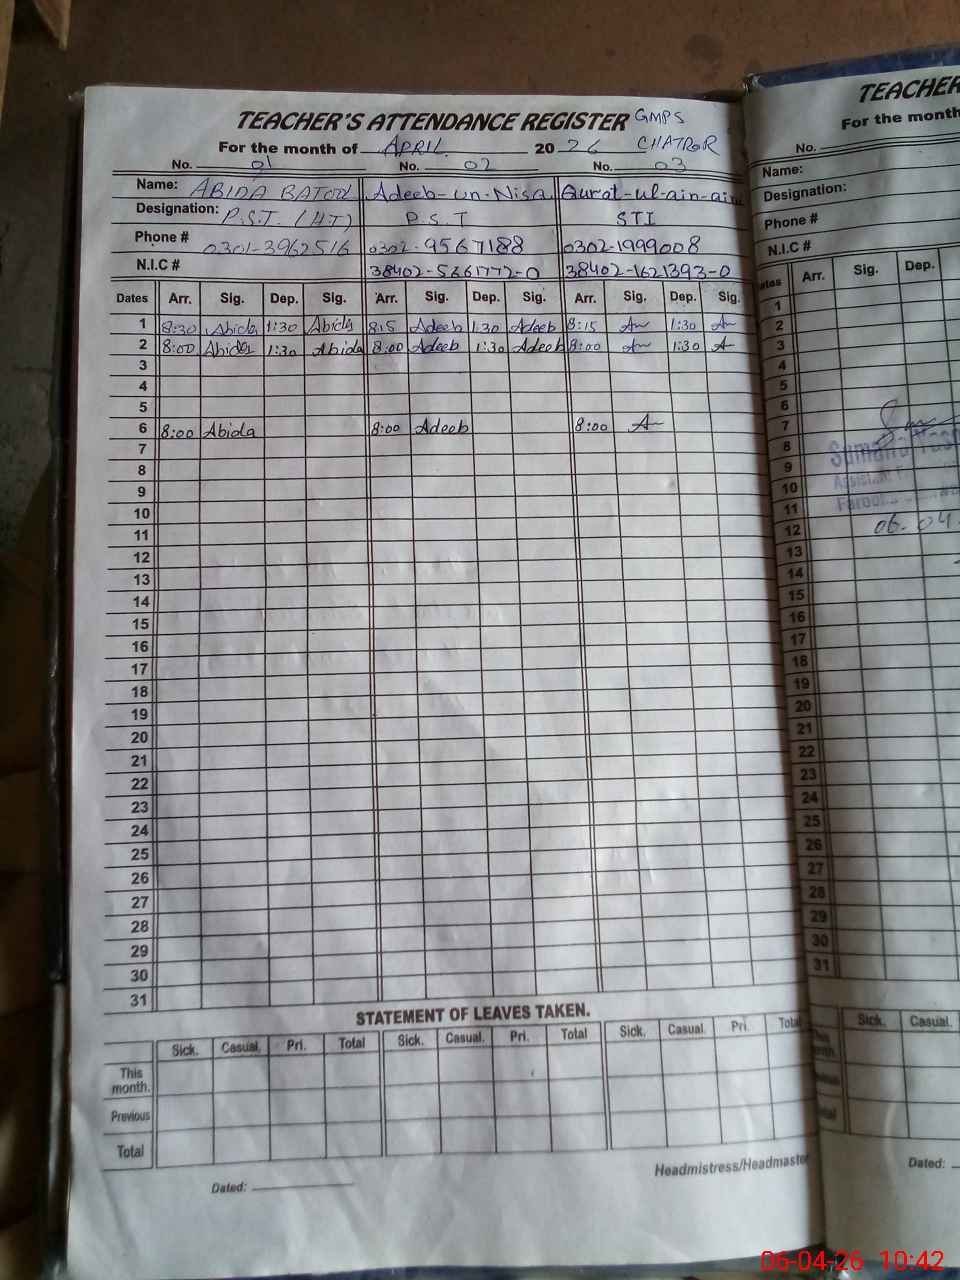 TEACHER'S ATTENDANCE REGISTER GMPS
For the month of APRIL 2026 CHATROR
No. 01 No. 02 No. 03
Name: ABIDA BATOOL Adeeb-un-Nisa Qurat-ul-ain-ain
Designation: P.S.T. (HT) P.S.T STI
Phone # 0301-3962516 0302-9567188 0302-1999008
N.I.C # 38402-1621393-0
Dates Arr. Sig. Dep. Sig. Arr. Sig. Dep. Sig. Arr. Sig. Dep. Sig.
1 8:30 Abida 1:30 Abida 8:15 Adeeb 1:30 Adeeb 8:15 1:30
2 8:00 Abida 1:30 Abida 8:00 Adeeb 1:30 Adeeb 8:00 1:30
3
4
5
6 8:00 Abida 8:00 Adeeb 8:00
7
8
9
10
11
12
13
14
15
16
17
18
19
20
21
22
23
24
25
26
27
28
29
30
31
STATEMENT OF LEAVES TAKEN.
Sick. Casual. Pri. Total Sick. Casual. Pri. Total Sick. Casual. Pri. Total
This month.
Previous
Total
Headmistress/Headmaster
Dated:
TEACHER
For the month
No.
Name:
Designation:
Phone #
N.I.C #
Dates Arr. Sig. Dep.
1
2
3
4
5
6
7
8
9
10
11
12 06.04
13
14
15
16
17
18
19
20
21
22
23
24
25
26
27
28
29
30
31
Sick. Casual.
Dated:
06-04-26 10:42